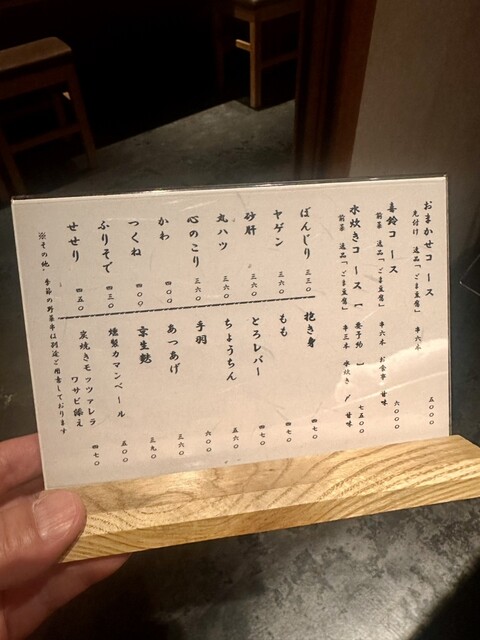 おまかせコース 五〇〇〇
先付け 逸品「ごま豆腐」 串六本
喜鈴コース 六〇〇〇
前菜 逸品「ごま豆腐」 串六本 お食事 甘味
水炊きコース 【要予約】 七五〇〇
前菜 逸品「ごま豆腐」 串三本 水炊き 〆 甘味
ぼんじり 三三〇
ヤゲン 三六〇
砂肝 三六〇
丸ハツ 三六〇
心のこり 三六〇
かわ 四〇〇
つくね 四〇〇
ふりそで 四三〇
せせり 四五〇
抱き身 四七〇
もも 四七〇
とろレバー 四七〇
ちょうちん 五六〇
手羽 六〇〇
あつあげ 三六〇
京生麩 三九〇
燻製カマンベール 五〇〇
炭焼きモッツァレラ
ワサビ添え 四七〇
※その他、季節の野菜串は別途ご用意しております